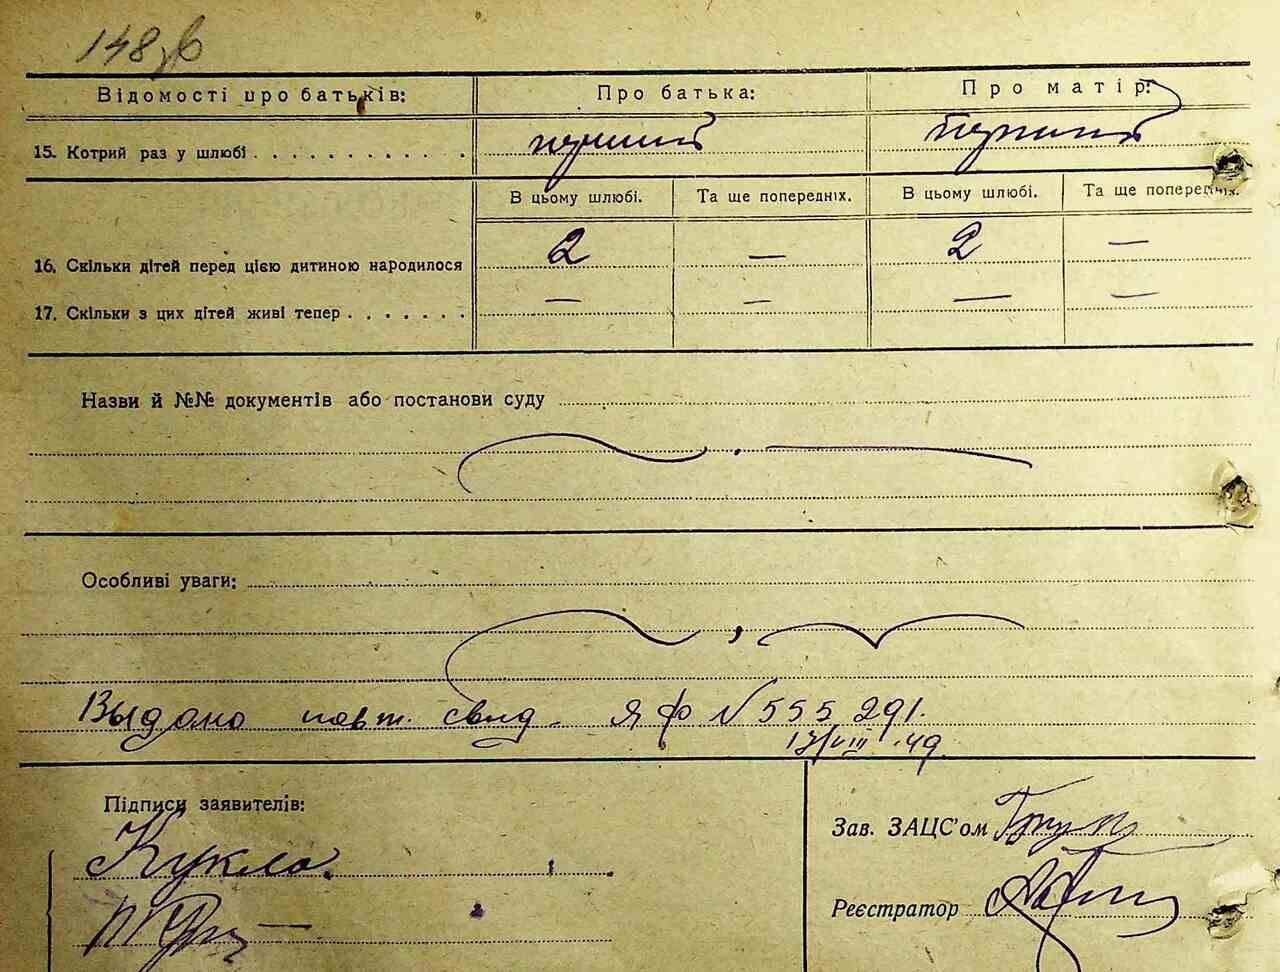 148зв
Відомості про батьків: Про батька: Про матір:
15. Котрий раз у шлюбі . . . . . . . . . . . . перший перший
В цьому шлюбі. Та ще попередніх. В цьому шлюбі. Та ще попередніх.
16. Скільки дітей перед цією дитиною народилося 2 — 2 —
17. Скільки з цих дітей живі тепер . . . . . . . — — — —
Назви й №№ документів або постанови суду
Особливі уваги:
Выдано повт. свид. ЯФ N 555291.
13/VIII 49
Підписи заявителів:
Зав. ЗАЦС'ом
Кукла
Реєстратор